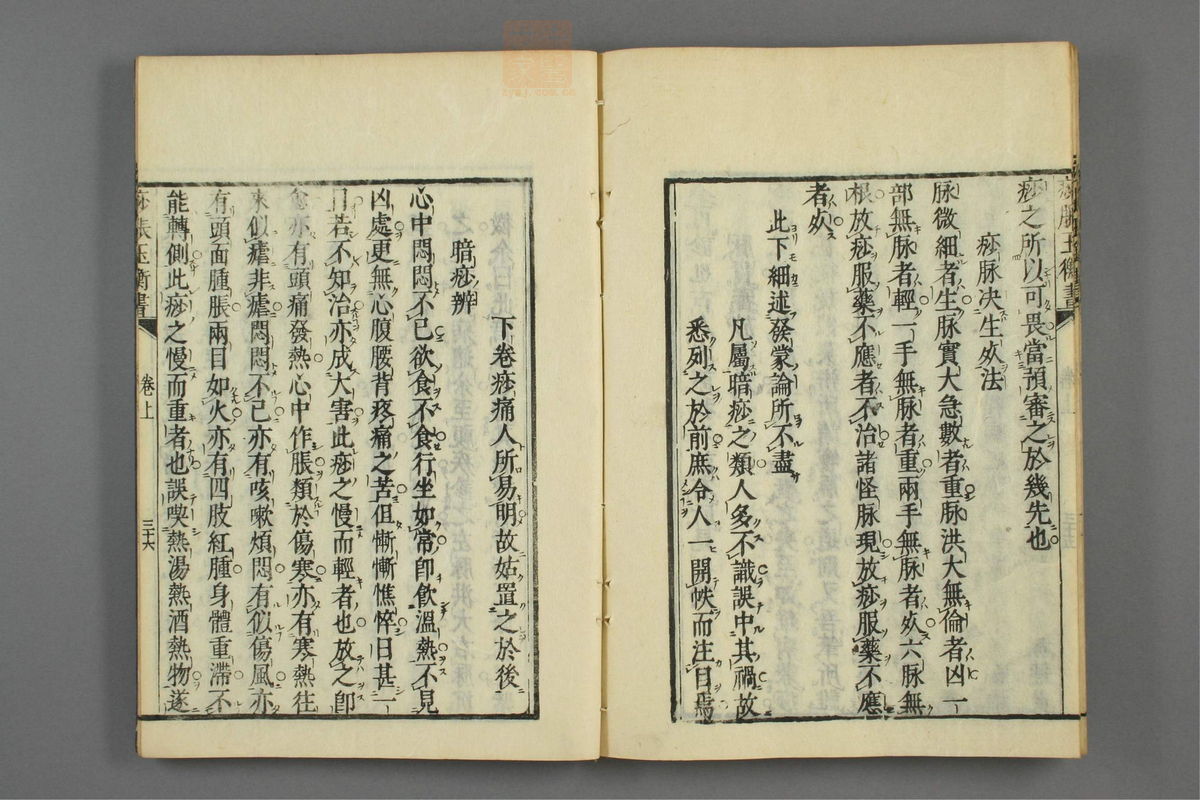 痧脹玉衡書
痧之所以可畏當預審之於幾先也
痧脉决生死法
脉微細者生脉實大急數者重脉洪大無倫者凶一
部無脉者輕一手無脉者重兩手無脉者死六脉無
根放痧服藥不應者不治諸怪脉現放痧服藥不應
者死
此下細述發蒙論所不盡
凡屬暗痧之類人多不識誤中其禍故
悉列之於前庶令人一開帙而注目焉
下卷痧痛人所易明故姑置之於後
暗痧辨
心中悶悶不已欲食不食行坐如常卽飲溫熱不見
凶處更無心腹腰背疼痛之苦但慚慚憔悴日甚一
日若不知治亦成大害此痧之慢而輕者也放之卽
愈亦有頭痛發熱心中作脹類於傷寒亦有寒熱往
來似瘧非瘧悶悶不已亦有咳嗽煩悶有似傷風亦
有頭面腫脹兩目如火亦有四肢紅腫身體重滯不
能轉側此痧之慢而重者也誤喫熱湯熱酒熱物遂
痧脹玉衡書
卷上
三十六